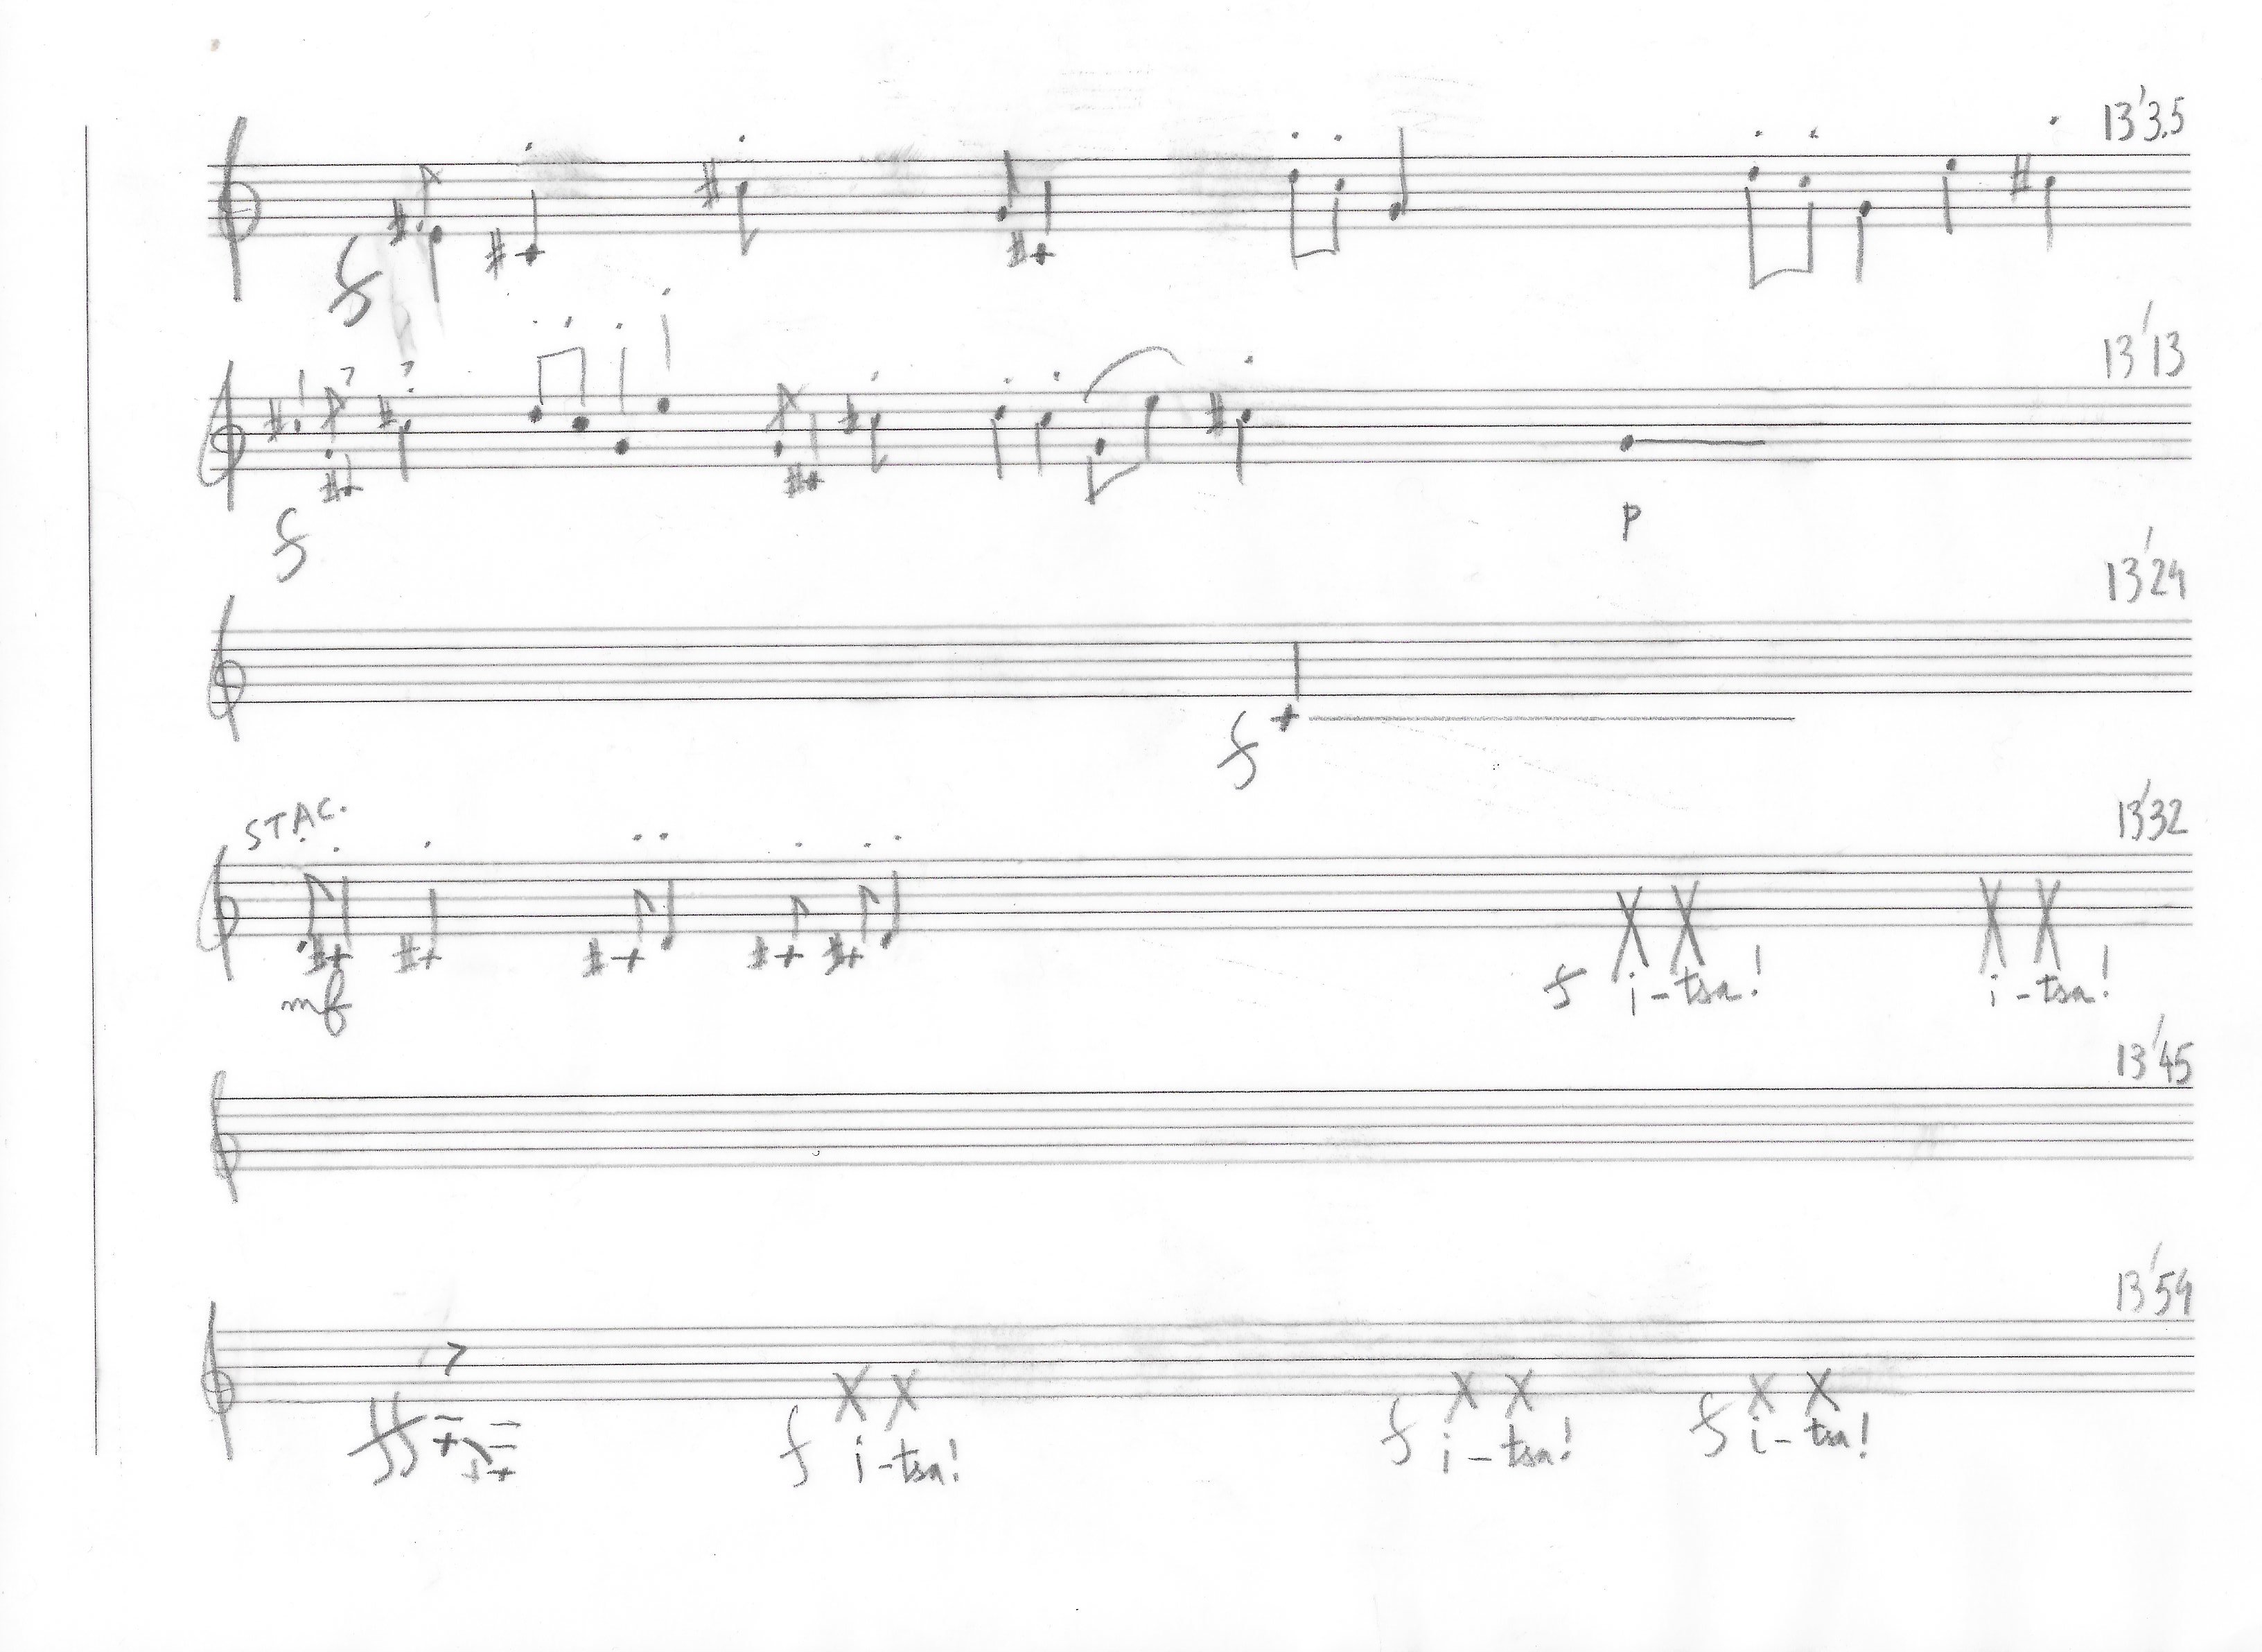 13'3.5
f
13'13
f p
13'24
f
STAC. 13'32
mf f i-tsa! i-tsa!
13'45
13'54
ff f i-tsa! f i-tsa! f i-tsa!